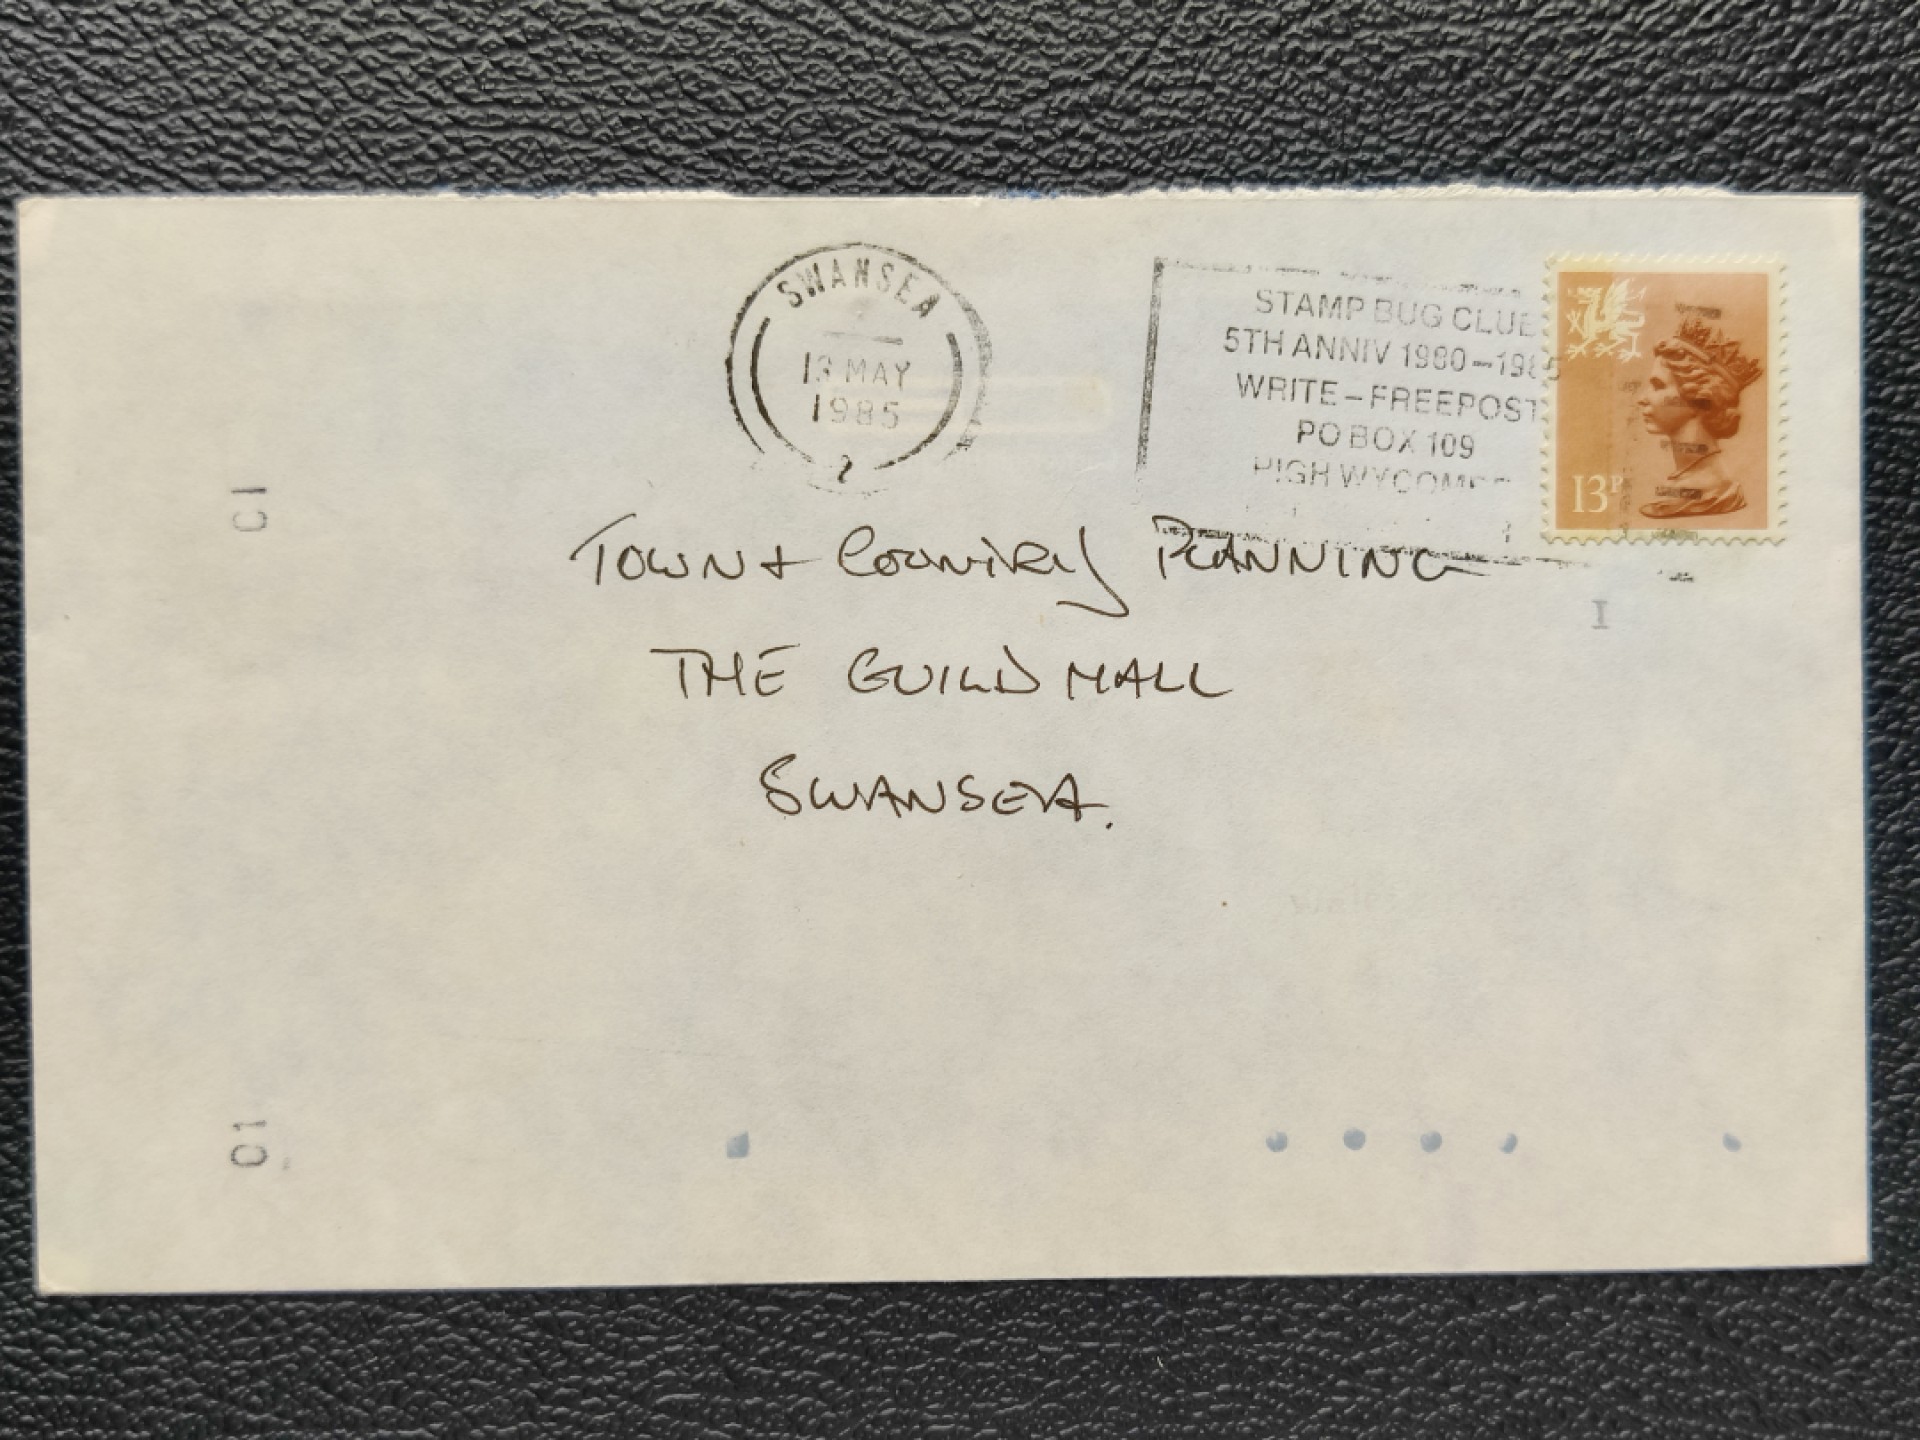 SWANSEA
13 MAY
1985
2
STAMP BUG CLUB
5TH ANNIV 1980-1985
WRITE-FREEPOST
PO BOX 109
HIGH WYCOMBE
13P
TOWN + COUNTRY PLANNING
THE GUILDHALL
SWANSEA.
I
C1
01